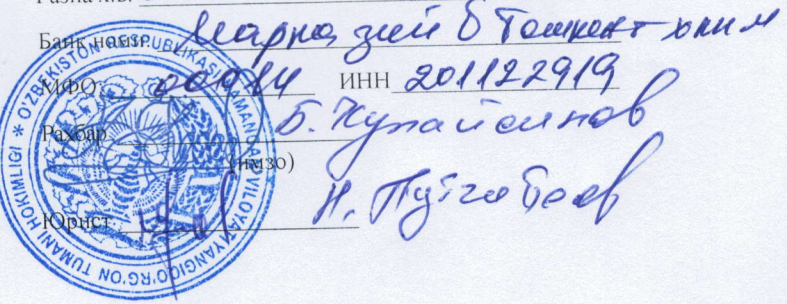 Банк номи: Марказий Б Тошкент
МФО 00014 ИНН 201122919
Рахбар Б.
(имзо)
Юрист Н.
O'ZBEKISTON RESPUBLIKASI NAMANGAN VILOYATI YANGIQO'RG'ON TUMANI HOKIMLIGI